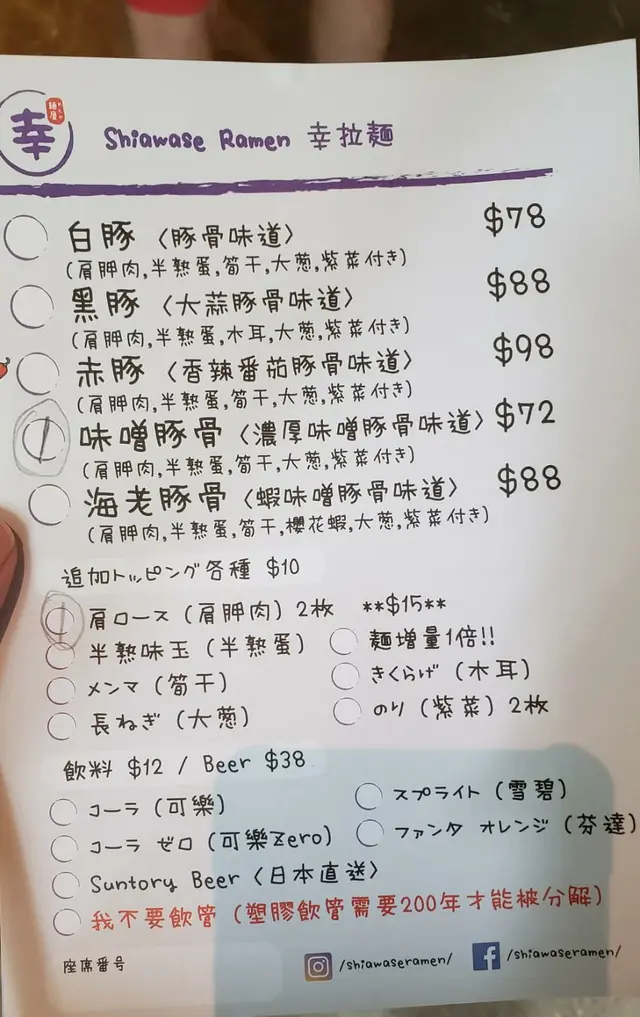 幸
Shiawase Ramen 幸拉麵
白豚〈豚骨味道〉 $78
(肩胛肉,半熟蛋,筍干,大葱,紫菜付き)
黑豚〈大蒜豚骨味道〉 $88
(肩胛肉,半熟蛋,木耳,大葱,紫菜付き)
赤豚〈香辣番茄豚骨味道〉 $98
(肩胛肉,半熟蛋,筍干,大葱,紫菜付き)
味噌豚骨〈濃厚味噌豚骨味道〉 $72
(肩胛肉,半熟蛋,筍干,大葱,紫菜付き)
海老豚骨〈蝦味噌豚骨味道〉 $88
(肩胛肉,半熟蛋,筍干,櫻花蝦,大葱,紫菜付き)
追加トッピング各種 $10
肩ロース（肩胛肉）2枚 **$15**
半熟味玉（半熟蛋） 麵增量1倍!!
メンマ（筍干） きくらげ（木耳）
長ねぎ（大葱） のり（紫菜）2枚
飲料 $12 / Beer $38
コーラ（可樂） スプライト（雪碧）
コーラ ゼロ（可樂Zero） ファンタ オレンジ（芬達）
Suntory Beer〈日本直送〉
我不要飲管（塑膠飲管需要200年才能被分解）
座席番号 /shiawaseramen/ /shiawaseramen/